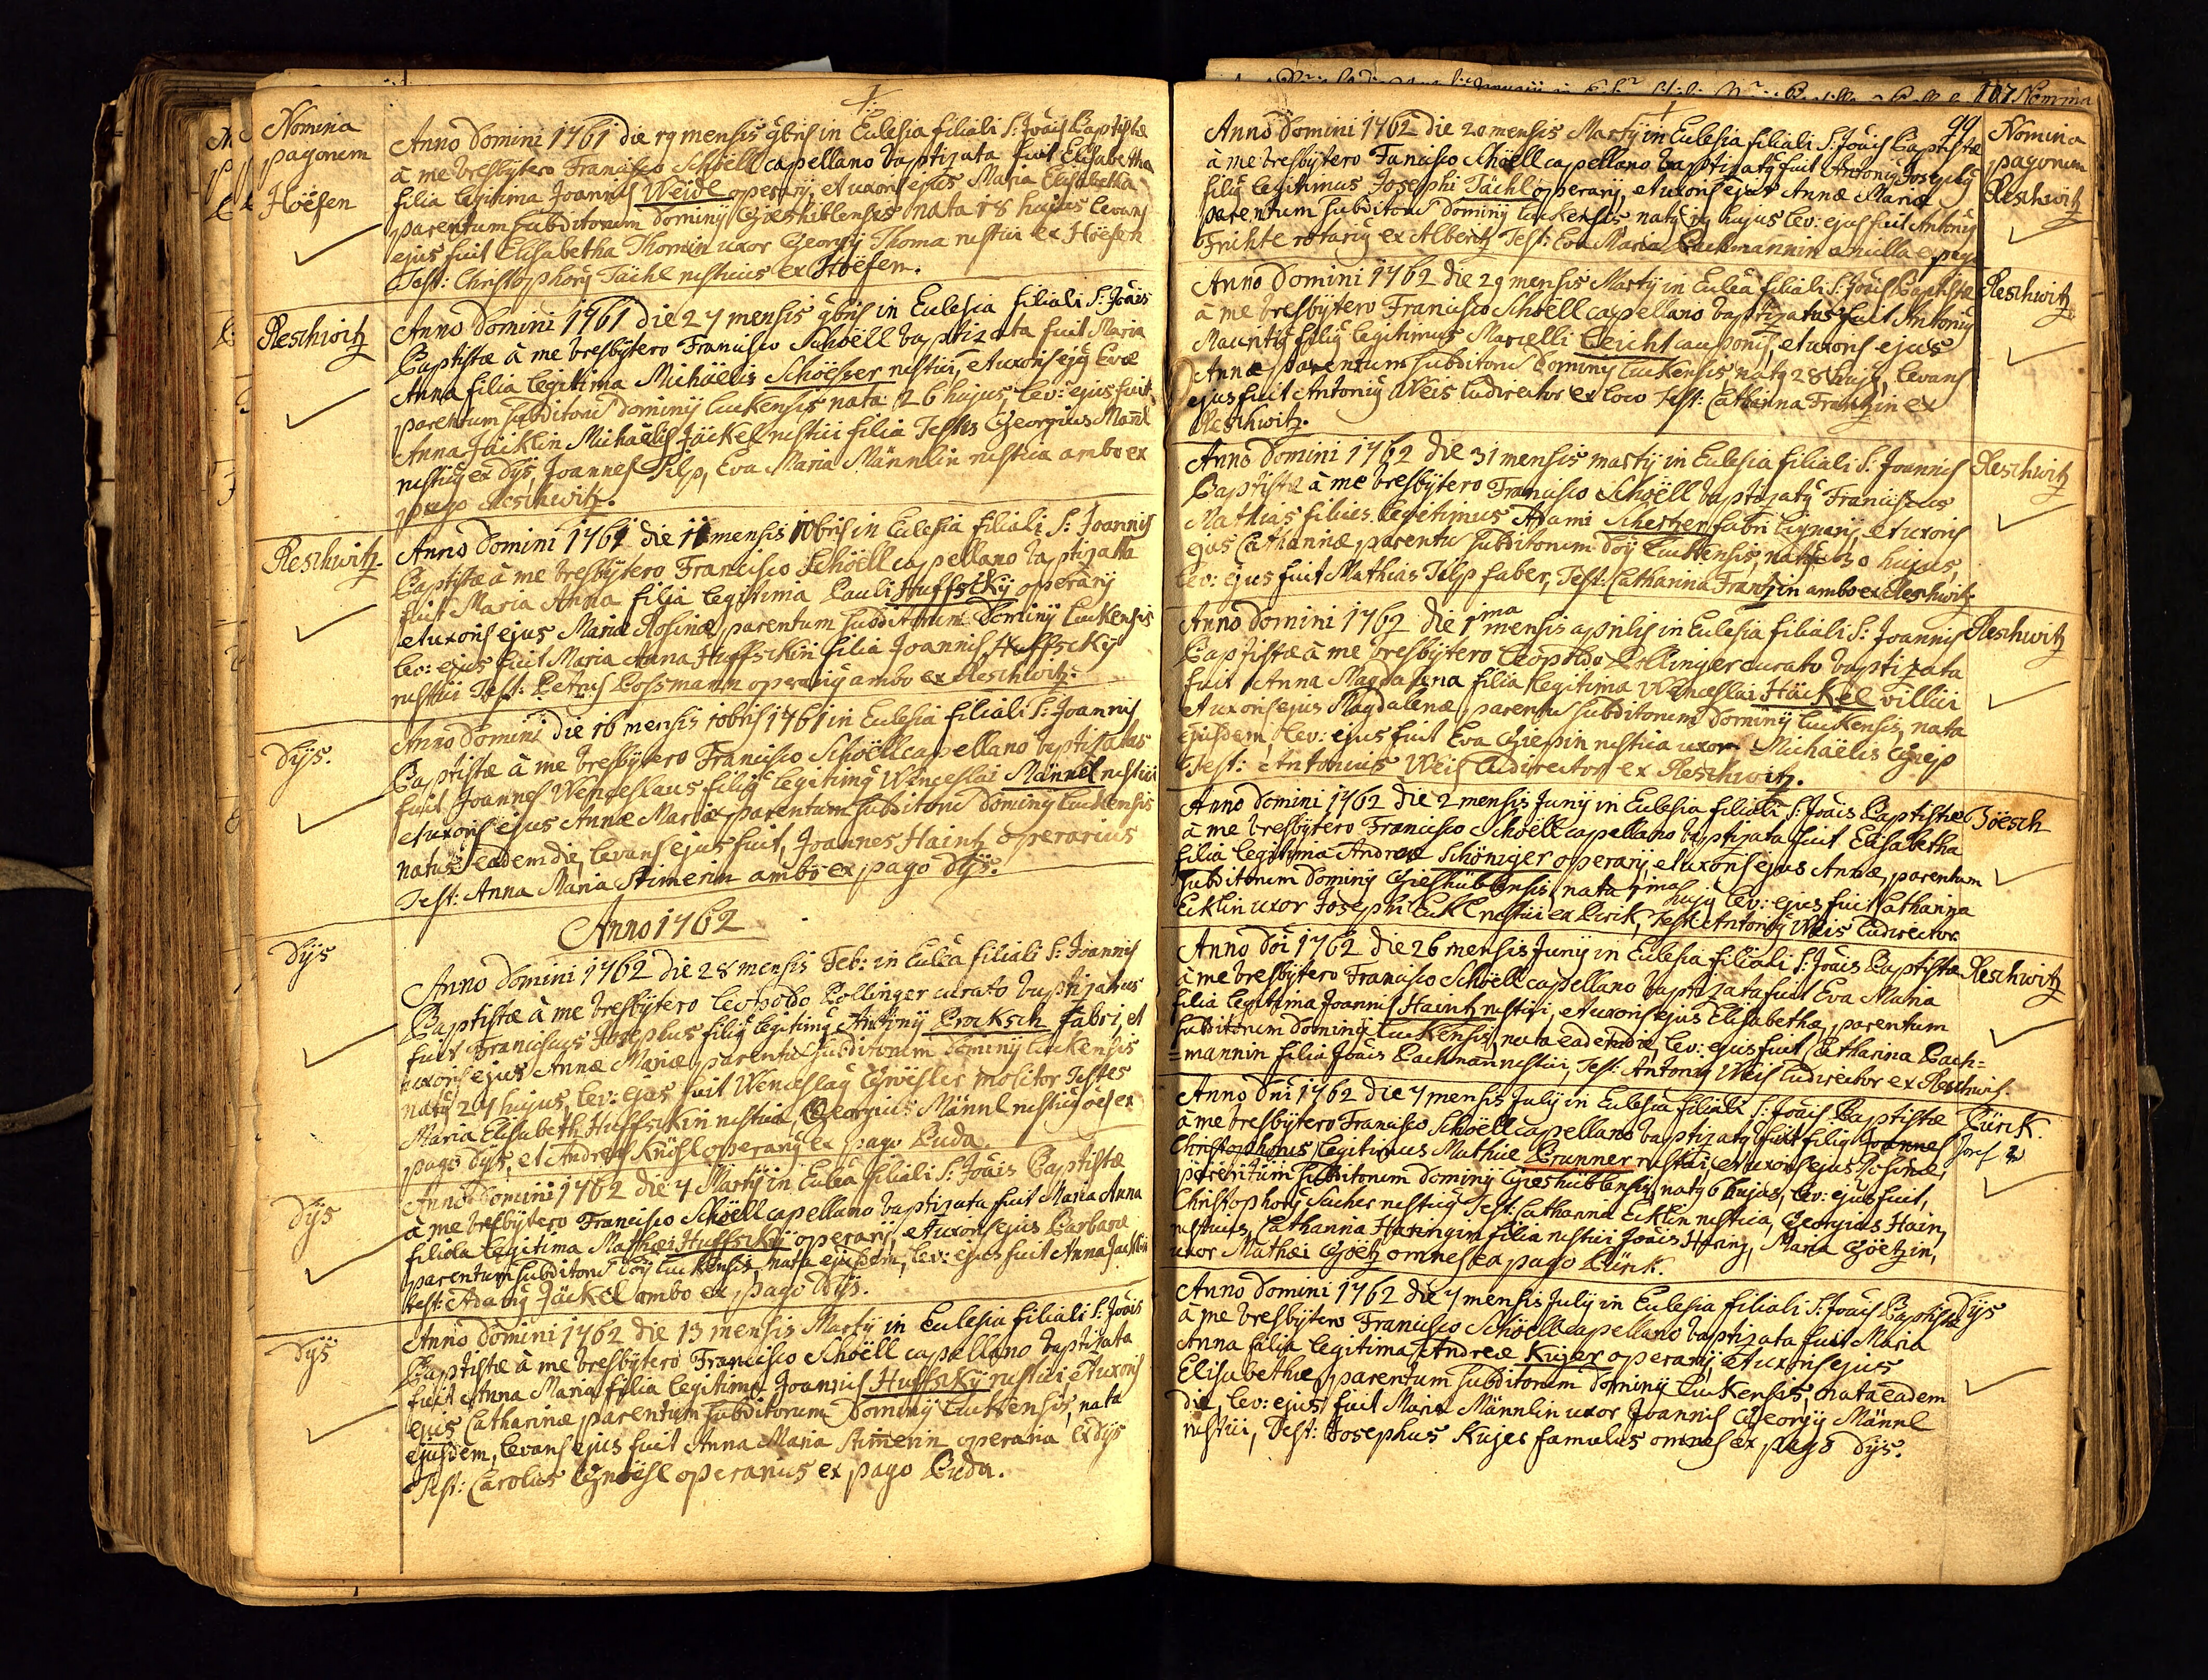 Nomina
pagorum
Höefen
Anno Domini 1761 die 19 mensis 9bris in Ecclesia filiali S: Joais Baptistæ
à me Presbÿtero Francisco Schöell capellano baptizata fuit Elisabetha
filia legitima Joannis Weidl operarÿ, et uxoris ejus Maria Elisabetha
parentum subditorum Dominÿ Gieshiblensis nata 18 hujus levans
ejus fuit Elisabetha Thomin uxor Georgÿ Thoma rustici ex Höefen
Test: Christophorg Tächl rusticus ex Höefen.
Reschwitz
Anno Domini 1761 die 27 mensis 9bris in Ecclesia filiali S: Joais
Baptistæ à me Presbÿtero Francisco Schöell baptizata fuit Maria
Anna filia legitima Michäelis Schöesser rustici, et uxoris ejg Evæ
parentum subditoru Dominÿ Luckensis nata 26 hujus, lev: ejus fuit
Anna Jäcklin Michäelis Jäckel rustici filia Testes Georgius Mañl
rusticg ex Dÿs, Joannes Tilp, Eva Maria Männlin rustica ambo ex
pago Reschwitz.
Reschwitz.
Anno Domini 1761 die 11 mensis 10bris in Ecclesia filiali S: Joannis
Baptistæ à me Presbÿtero Francisco Schöell capellano baptizatta
fuit Maria Anna filia legitima Pauli Huffsckÿ operarÿ
et uxoris ejus Mariæ Rosinæ, parentum subditorum Dominÿ Luckensis
lev: ejus fuit Maria Anna Huffsckin filia Joannis Huffsckÿ
rustici Test: Petrus Possmann operarg ambo ex Reschwitz.
Dÿs.
Anno Domini die 16 mensis 10bris 1761 in Ecclesia filiali S: Joannis
Baptistæ à me Presbÿtero Francisco Schöell capellano baptizatus
fuit Joannes Wenceslaus filig legitimg Winceslai Männel rustici
et uxoris ejus Annæ Mariæ parentum subditoru Dominÿ Luckensis
natus eadem die, levans ejus fuit, Joannes Haintz operarius
Test: Anna Maria Stimerin ambo ex pago Dÿs.
Anno 1762
Dÿs
Anno Domini 1762 die 28 mensis Feb: in Eccla filiali S: Joannis
Baptistæ à me Presbÿtero Leopoldo Pollinger curato baptizatus
fuit Franciscus Josephus filig legitimg Antonÿ Procksch fabri, et
uxoris ejus Annæ Mariæ, parentu subditorum Dominÿ Luckensis
natg 27 hujus, lev: ejus fuit Wenceslag Gröesler molitor Testes
Maria Elisabeth Huffsckin rustica, Georgius Männl rusticg oes ex
pago Dÿs, et Andreas Knöhl operarg ex pago Buda.
Dÿs
Anno Domini 1762 die 7 Martÿ in Eccla filiali S: Joais Baptistæ
à me Presbÿtero Francisco Schöell capellano baptizata fuit Maria Anna
filiola legitima Mathæi Huffsckÿ operarÿ, et uxoris ejus Barbaræ
parentum subditoru Doÿ Luckensis, nata ejusdem, lev: ejus fuit Anna Jacklin
test: Adamg Jäckel ambo ex pago Dÿs.
Dÿs
Anno Domini 1762 die 13 mensis Martÿ in Ecclesia filiali S: Joais
Baptistæ à me Presbÿtero Francisco Schöell capellano baptizata
fuit Anna Maria filia legitima Joannis Huffsckÿ rustici, et uxoris
ejus Catharinæ parentum subditorum Dominÿ Luckensis, nata
ejusdem, levans ejus fuit Anna Maria Stimerin operaria ex Dÿs
Test: Carolus Gnöesl operarius ex pago Buda.
107 Nomina
99
Nomina
pagorum
Reschwitz
Anno Domini 1762 die 20 mensis Martÿ in Ecclesia filiali S: Joais Baptistæ
à me Presbÿtero Fancisco Schöell capellano baptizatg fuit Antonig Josephg
filig legitimus Josephi Tächl operarÿ, et uxoris ejus Annæ Mariæ
parentum subditoru Dominÿ Luckensis natg 19 hujus lev: ejus fuit Antonig
Frichte rotarig ex Alberitz Test: Eva Maria Bachmannin ancilla ex pago
Reschwitz
Anno Domini 1762 die 29 mensis Martÿ in Eccla filiali S: Joais Baptistæ
à me Presbÿtero Francisco Schöell capellano baptizatus fuit Antonig
Mauritg filig legitimus Marcelli Leicht cauponis, et uxoris ejus
Annæ, parentum subditoru Dominÿ Luckensis natg 28 hujg, levans
ejus fuit Antonig Weis ludirector ex loco Test: Catharina Frantzin ex
Reschwitz.
Reschwitz
Anno Domini 1762 die 31 mensis martÿ in Ecclesia filiali S: Joannis
Baptistæ à me Presbÿtero Francisco Schöell baptizatg Franciscus
Mathias filius legitimus Adami Schertzer fabri lignarÿ, et uxoris
ejus Catharinæ, parentu subditorum Doÿ Luckensis, natg 30 hujus,
lev: ejus fuit Mathias Tilp faber, Test: Catharina Frantzin ambo ex Reschwitz
Reschwitz
Anno Domini 1762 die 1ma mensis aprilis in Ecclesia filiali S: Joannis
Baptistæ à me Presbÿtero Leopoldo Pollinger curato baptizata
fuit Anna Magdalena filia legitima Winceslai Häckel villici
et uxoris ejus Magdalenæ, parentu subditorum Dominÿ Luckensis, nata
ejusdem, lev: ejus fuit Eva Gresin rustica uxor Michäelis Gries
Test: Antonius Weis ludirector ex Reschwitz.
Jöesch
Anno Domini 1762 die 2 mensis Junÿ in Ecclesia filiali S: Joais Baptistæ
à me Presbÿtero Francisco Schöell capellano baptizata fuit Elisabetha
filia legitima Andreæ Schöniger operarÿ, et uxoris ejus Annæ, parentum
subditorum Dominÿ Gieshüblensis, nata 1ma hujg lev: ejus fuit Catharina
Ecklin uxor Josephi Eckl rustici ex Pirik, Test: Antonig Weis ludirector.
Reschwitz
Anno Doi 1762 die 26 mensis Junÿ in Ecclesia filiali S: Joais Baptistæ
à me Presbÿtero Francisco Schöell capellano baptizata fuit Eva Maria
filia legitima Joannis Haintz rustici, et uxoris ejus Elisabethæ, parentum
subditorum Dominÿ Luckensis, nata eadem die, lev: ejus fuit Catharina Bach=
=mannin filia Joais Bachmann rustici, Test: Antonig Weis ludirector ex Reschwitz.
Pürik.
Josef
Anno Dni 1762 die 7 mensis Julÿ in Ecclesia filiali S: Joais Baptistæ
à me Presbÿtero Francisco Schöell capellano baptizatg fuit filig Joannes
Christophorus legitimus Mathiæ Brunner rustici, et uxoris ejus Rosinæ,
parentum subditorum Dominÿ Gieshüblensis, natg 6 hujus, lev: ejus fuit,
Christophorg Sacher rusticg Test: Catharina Ecklin rustica, Georgius Hain
rusticus, Catharina Haringin filia rustici Joais Haring, Maria Göetzin,
uxor Mathæi Göetz omnes ex pago Pürik.
Dÿs
Anno Domini 1762 die 7 mensis Julÿ in Ecclesia filiali S: Joais Baptistæ
à me Presbÿtero Francisco Schöell capellano baptizata fuit Maria
Anna filia legitima Andreæ Kujer operarÿ, et uxoris ejus
Elisabethæ, parentum subditorum Dominÿ Luckensis, nata eadem
die, lev: ejus fuit Maria Männlin uxor Joannis Georgÿ Männl
rustici, Test: Josephus Kujer famulus omnes ex pago Dÿs.